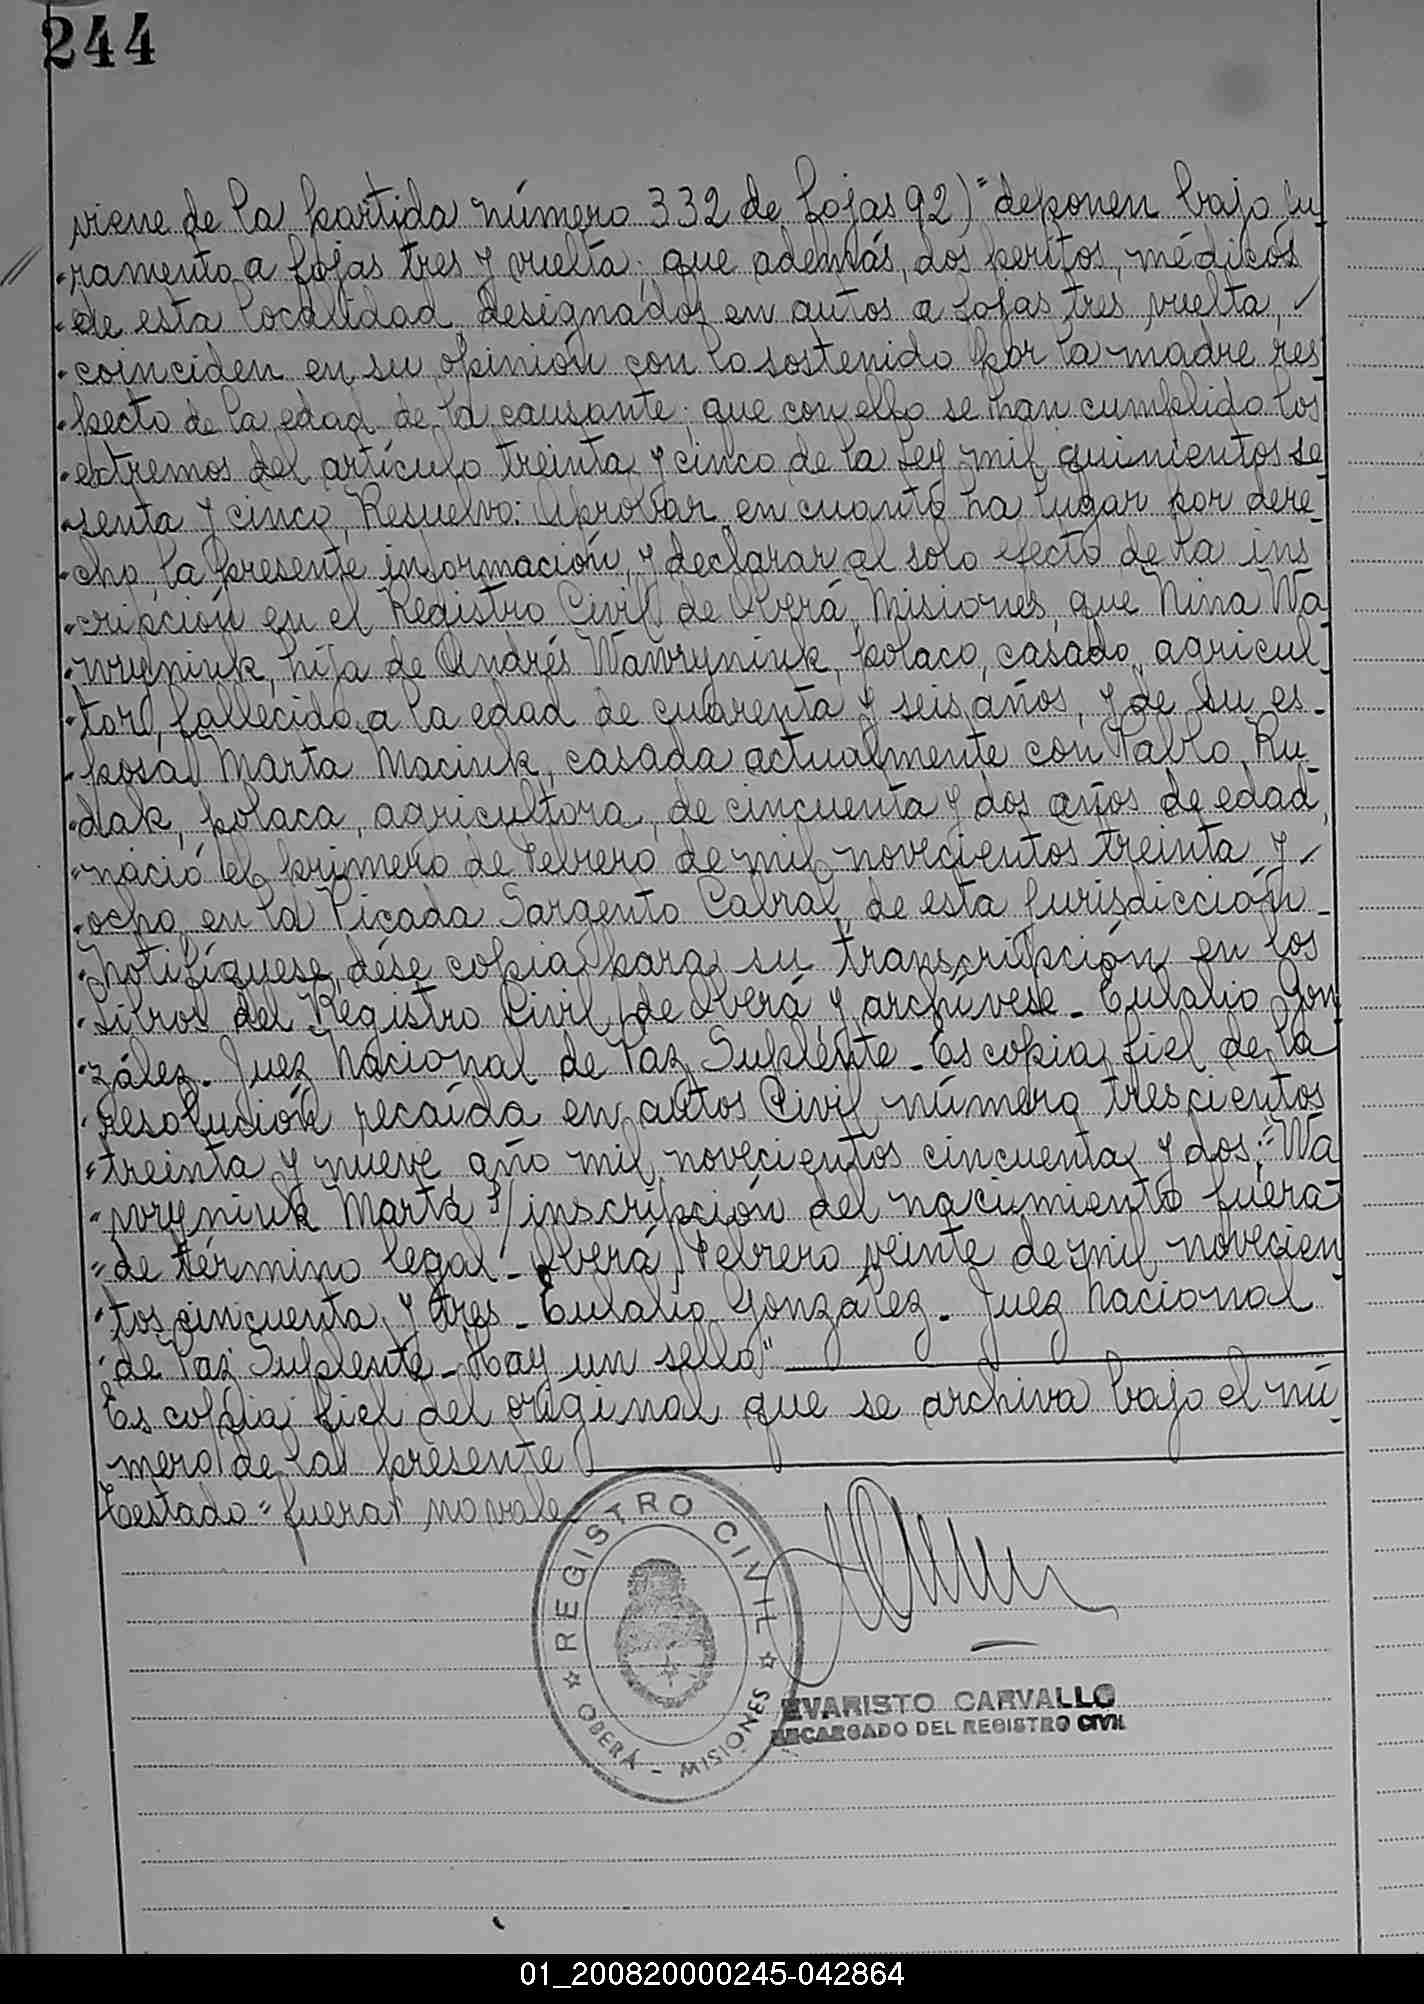 244
viene de la partida número 332 de fojas 92) "deponen bajo ju
"ramento a fojas tres y vuelta; que además, dos peritos, médicos
"de esta localidad, designados en autos a fojas tres vuelta,
"coinciden en su opinión con lo sostenido por la madre res
"pecto de la edad de la causante; que con ello se han cumplido los
"extremos del artículo treinta y cinco de la Ley mil quinientos se
"senta y cinco, Resuelvo: Aprobar en cuanto ha lugar por dere_
"cho la presente información, y declarar al solo efecto de la ins
"cripción en el Registro Civil de Oberá, Misiones, que Nina Wa
"wryniuk, hija de Andrés Wawryniuk, polaco, casado, agricul_
"tor, fallecido a la edad de cuarenta y seis años, y de su es_
"posa Marta Maciuk, casada actualmente con Pablo Ru
"dak, polaca, agricultora, de cincuenta y dos años de edad,
"nació el primero de Febrero de mil novecientos treinta y
"ocho en la Picada Sargento Cabral, de esta Jurisdicción_
"Notifíquese, dése copia para su transcripción en los
"Libros del Registro Civil de Oberá y archívese_ Eulalio Gon
"zález_ Juez Nacional de Paz Suplente_ Es copia fiel de la
"resolución recaída en autos Civil número trescientos
"treinta y nueve año mil novecientos cincuenta y dos; "Wa
"wryniuk Marta s/inscripción del nacimiento fuera
"de término legal_ Oberá, Febrero veinte de mil novecien
"tos cincuenta y tres_ Eulalio González_ Juez Nacional
"de Paz Suplente_ Hay un sello"
Es copia fiel del original que se archiva bajo el nú
mero de la presente
Testado "fuera" no vale
REGISTRO CIVIL
OBERÁ - MISIONES
EVARISTO CARVALLO
ENCARGADO DEL REGISTRO CIVIL
01_200820000245-042864